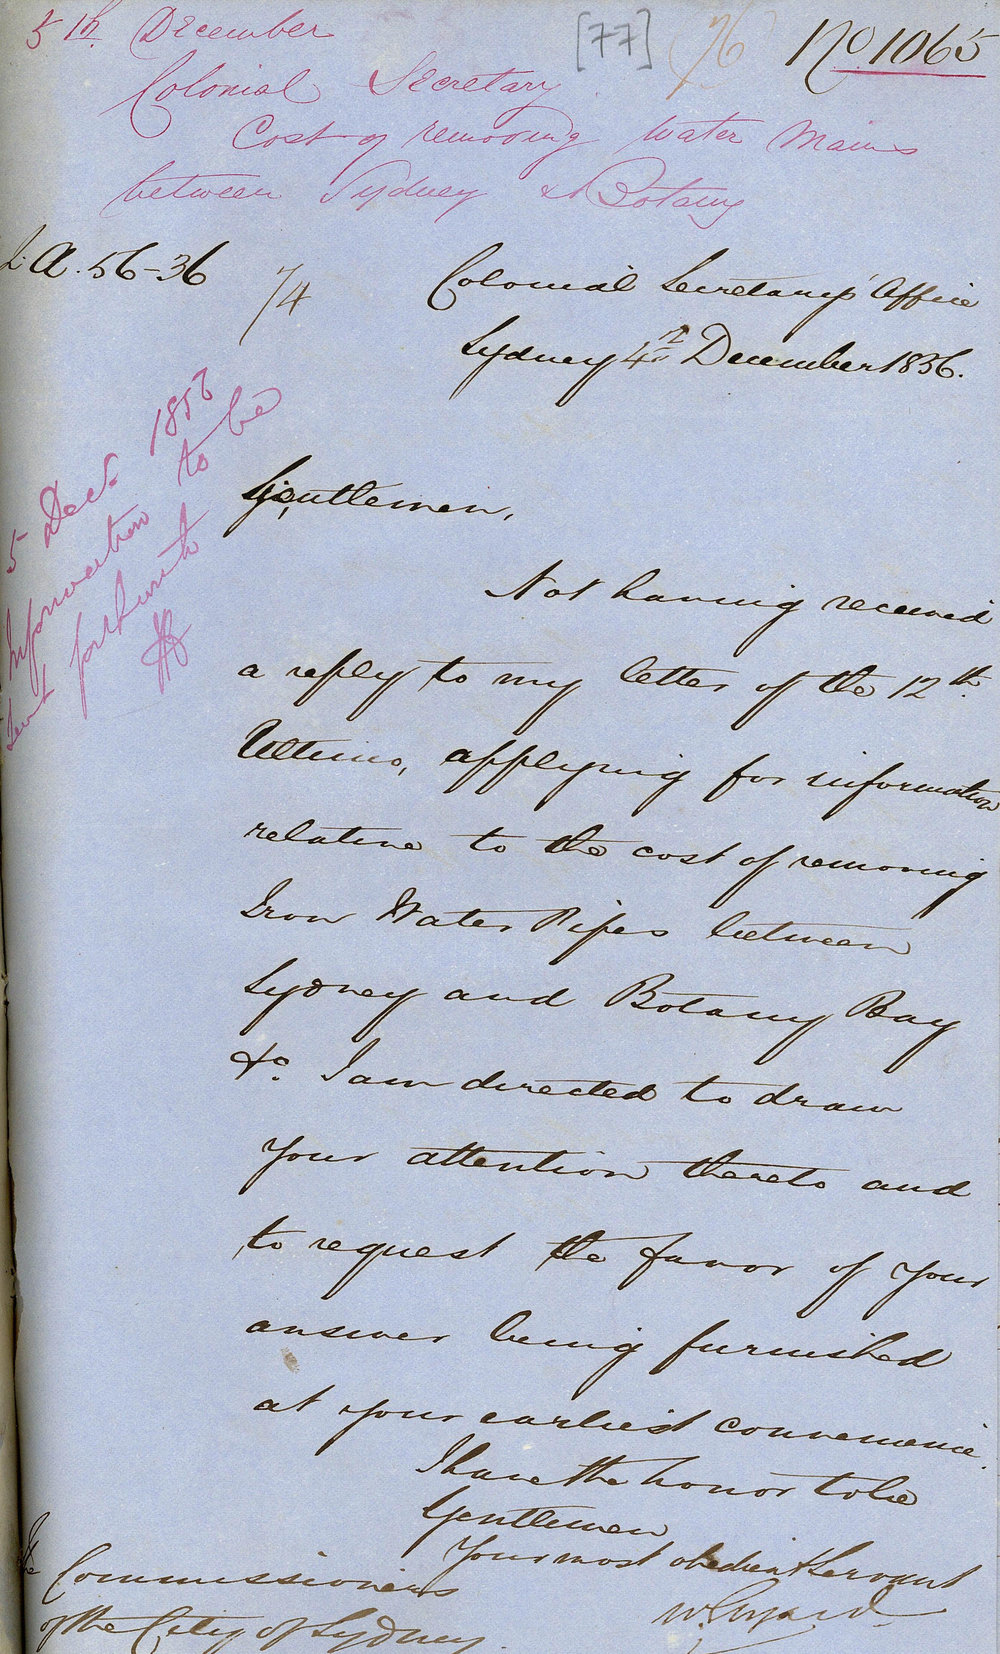 5th December
[77] 76 No 1065
Colonial Secretary
Cost of removing Water Mains
between Sydney & Botany
L.A. 56-36
74
Colonial Secretary's Office
Sydney 4th December 1856.
5 Dec. 1856
Information to be
sent forthwith
Gentlemen,
Not having received
a reply to my letter of the 12th
Ultimo, applying for information
relative to the cost of removing
Iron Water Pipes between
Sydney and Botany Bay
&c. I am directed to draw
your attention thereto and
to request the favor of your
answer being furnished
at your earliest convenience.
I have the honor to be
Gentlemen
Your most obedient Servant
The Commissioners
of the City of Sydney.